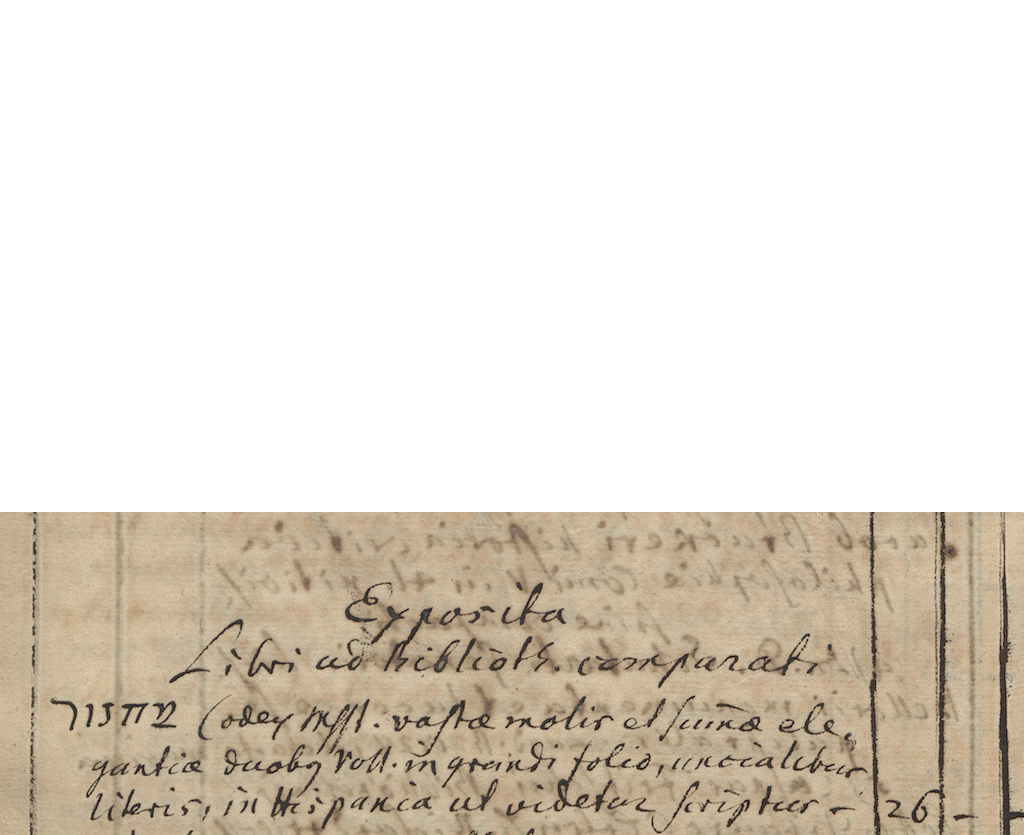 Exposita
Libri ad Biblioth. comparati
Codex Msst. vastæ molis et sum̃æ ele,
gantiæ duobq Voll. in grandi folio, uncialibus
literis, in Hispania ut videtur scriptus – 26 –